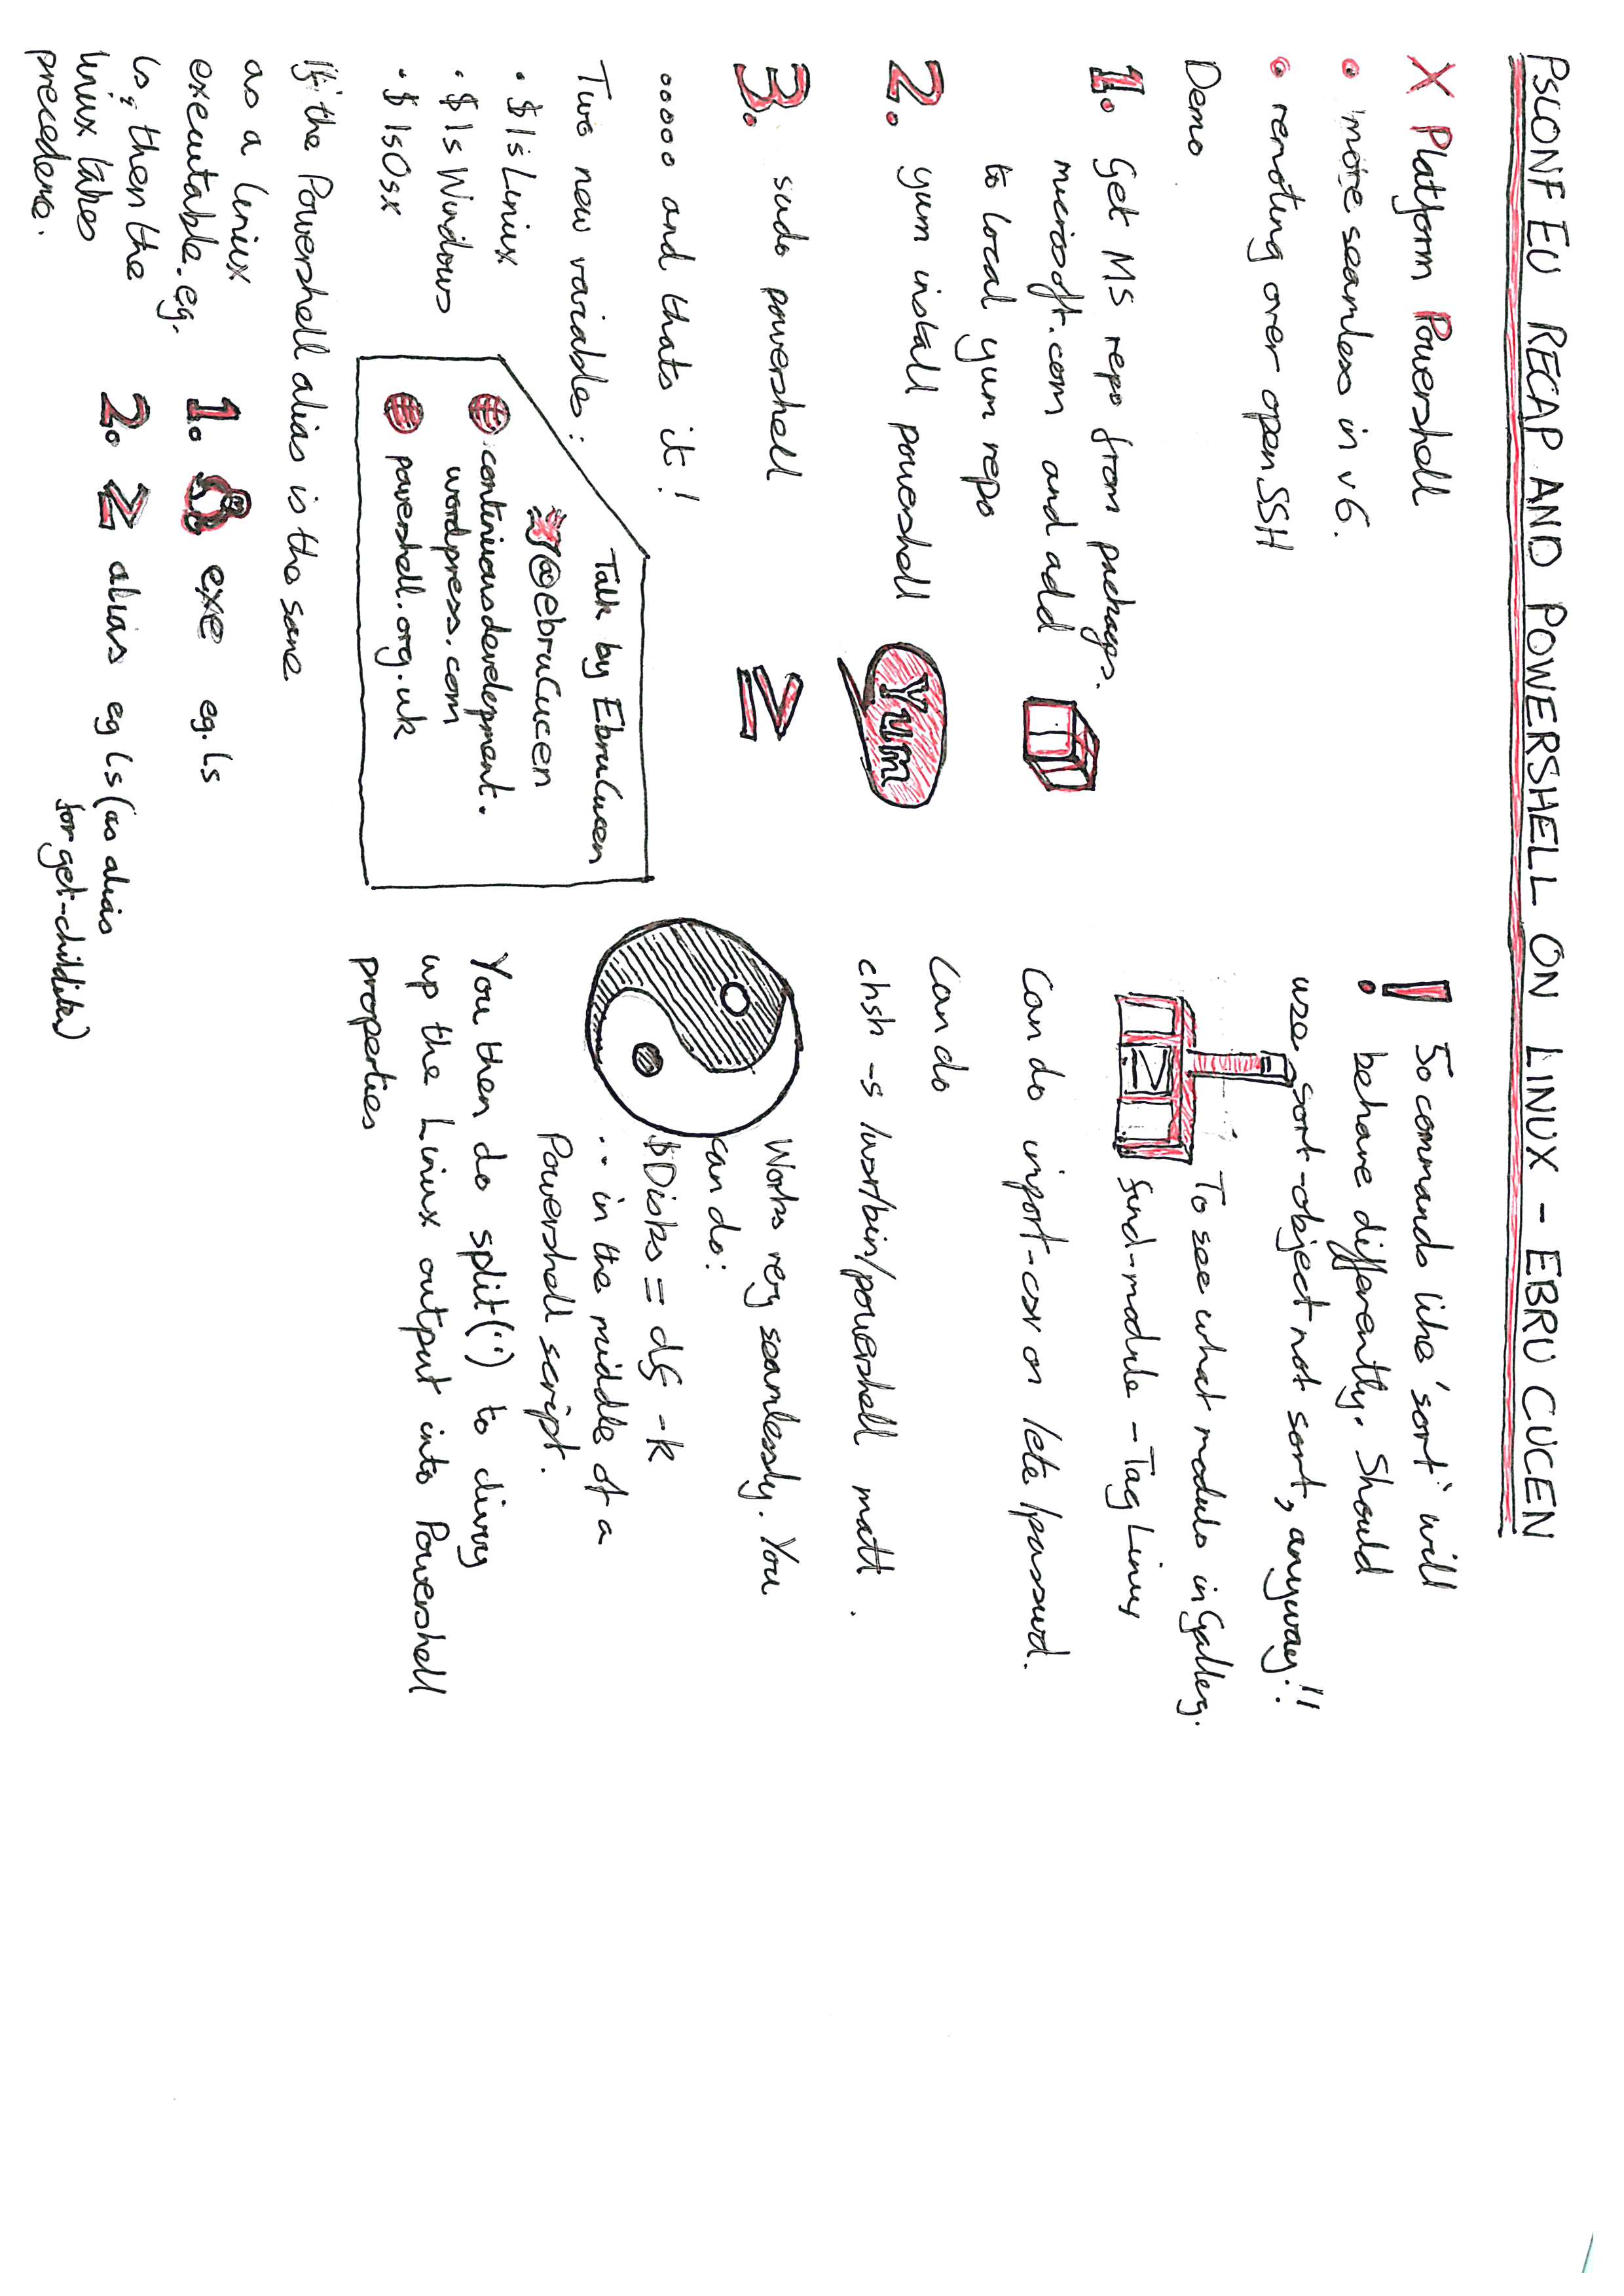 PSCONF EU RECAP AND POWERSHELL ON LINUX - EBRU CUCEN
X Platform Powershell
• more seamless in v6.
• remoting over openSSH
Demo
1. Get MS repo from packages.
microsoft.com and add
to local yum repo
2. yum install powershell
Yum
3. sudo powershell
ooooo and thats it!
Two new variables:
• $IsLinux
• $IsWindows
• $IsOsx
Talk by EbruCucen
@ebruCucen
continuousdevelopment.
wordpress.com
powershell.org.uk
If the Powershell alias is the same
as a linux
executable. eg.
ls, then the
linux takes
precedence.
1. exe eg. ls
2. ≥ alias eg ls (as alias
for get-childitem)
! So commands like 'sort' will
behave differently. Should
use sort-object not sort, anyway!!
To see what modules in Gallery.
find-module -Tag Linux
Can do import-csv on /etc/passwd.
Can do
chsh -s /usr/bin/powershell matt.
Works very seamlessly. You
can do:
$Disks = df -k
.. in the middle of a
Powershell script.
You then do split('') to divvy
up the Linux output into Powershell
properties